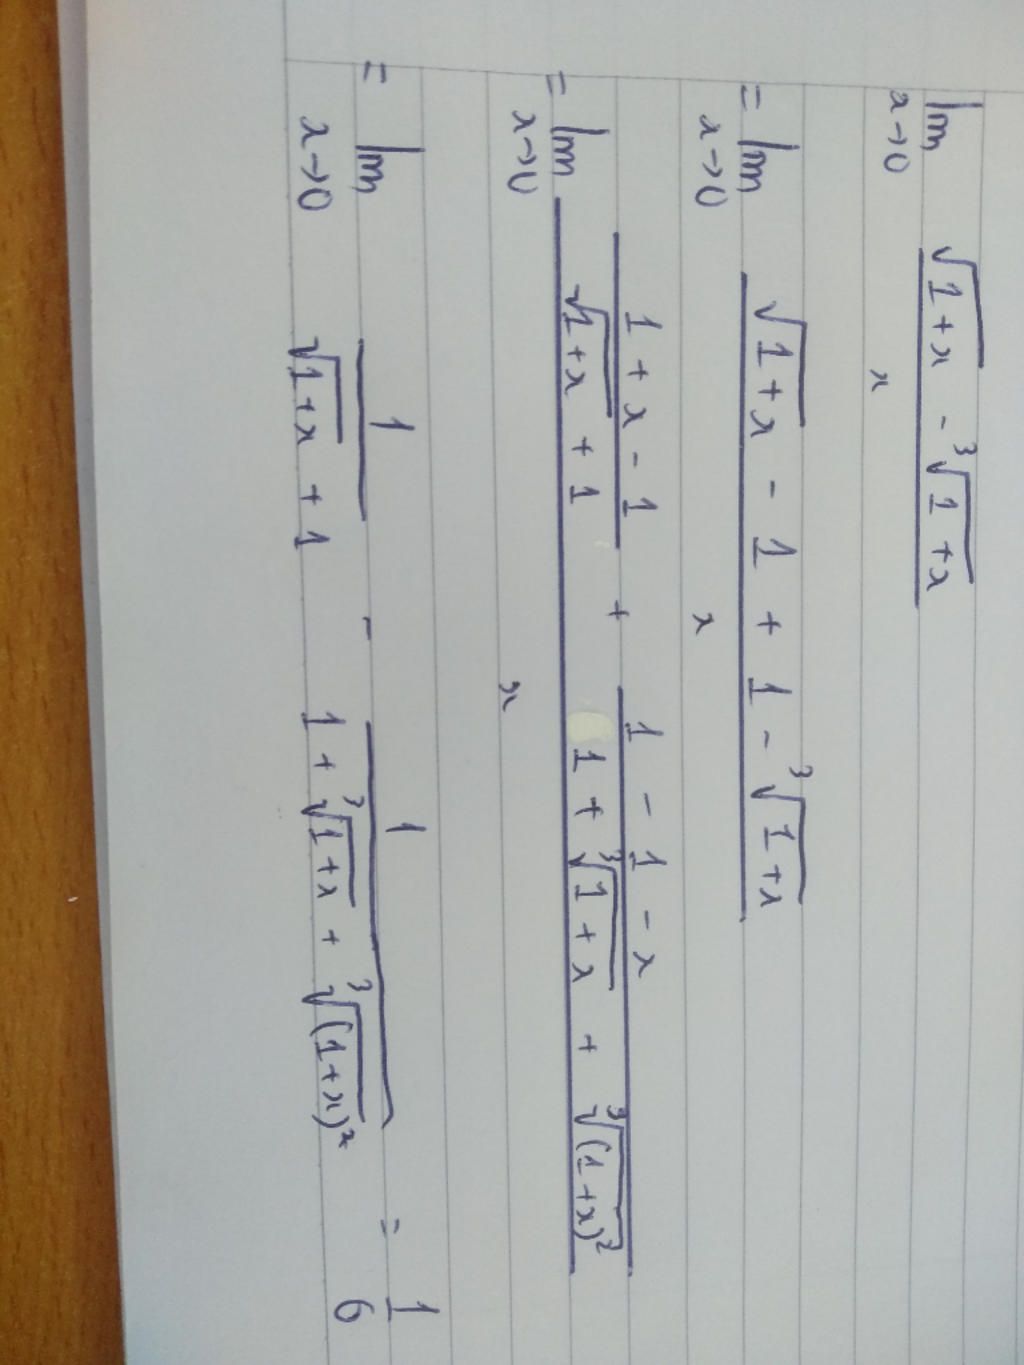 lim x→0 (√(1+x) - ∛(1+x)) / x
= lim x→0 (√(1+x) - 1 + 1 - ∛(1+x)) / x
= lim x→0 ((1+x-1)/(√(1+x) + 1) + (1-1-x)/(1 + ∛(1+x) + ∛((1+x)²))) / x
= lim x→0 1/(√(1+x) + 1) - 1/(1 + ∛(1+x) + ∛((1+x)²)) = 1/6